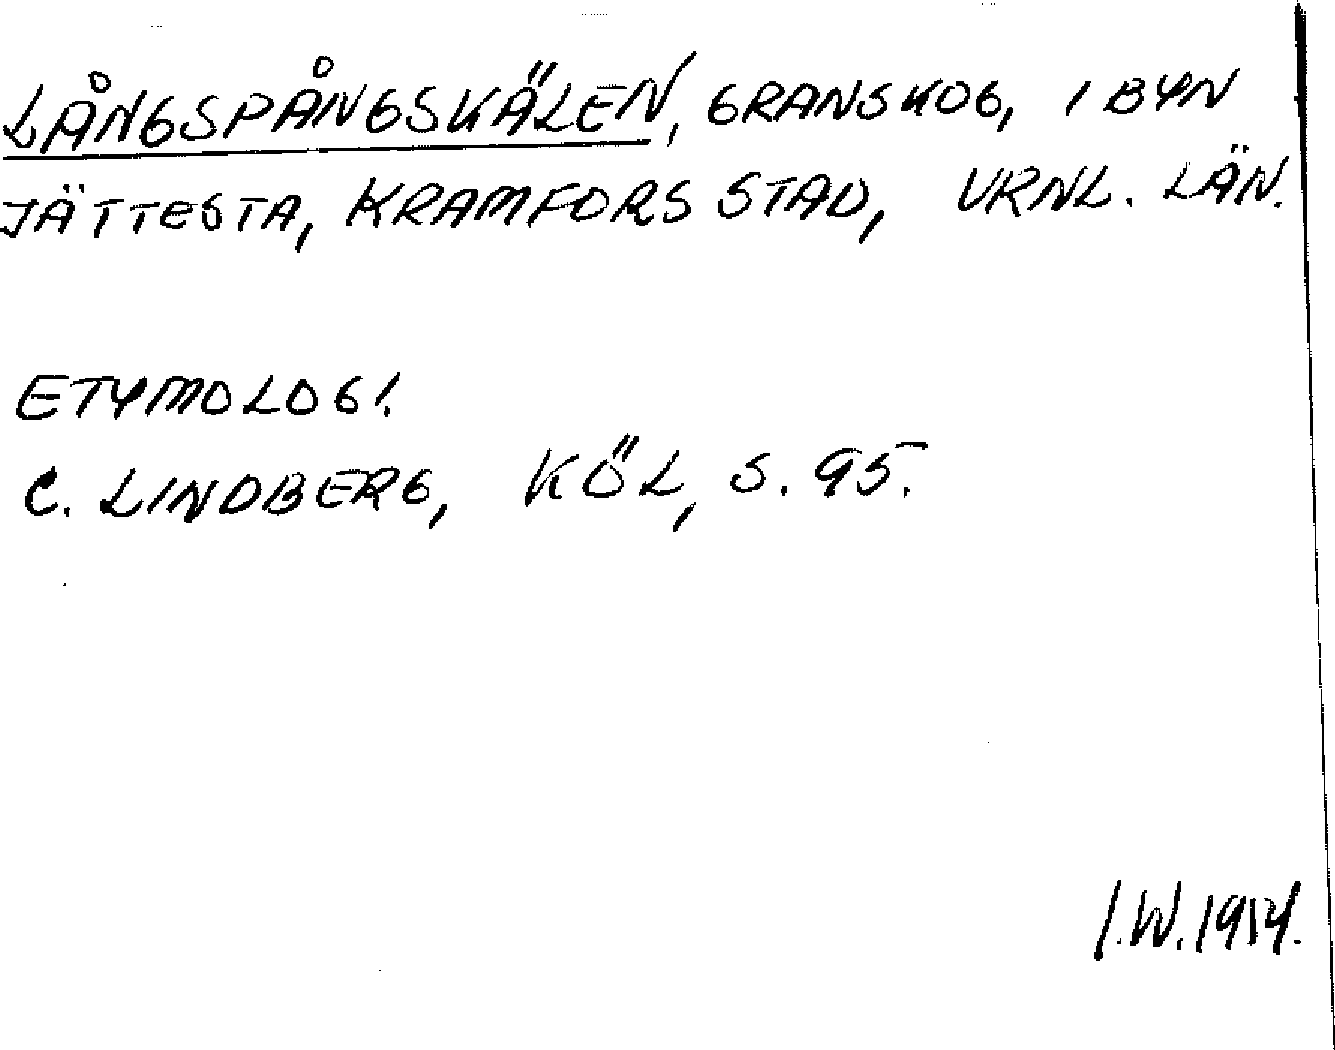 LÅNGSPÅNGSKÄLEN, GRANSKOG, I BYN
JÄTTESTA, KRAMFORS STAD, VRNL. LÄN.
ETYMOLOGI.
C. LINDBERG, KÖL, S. 95.
I.W.